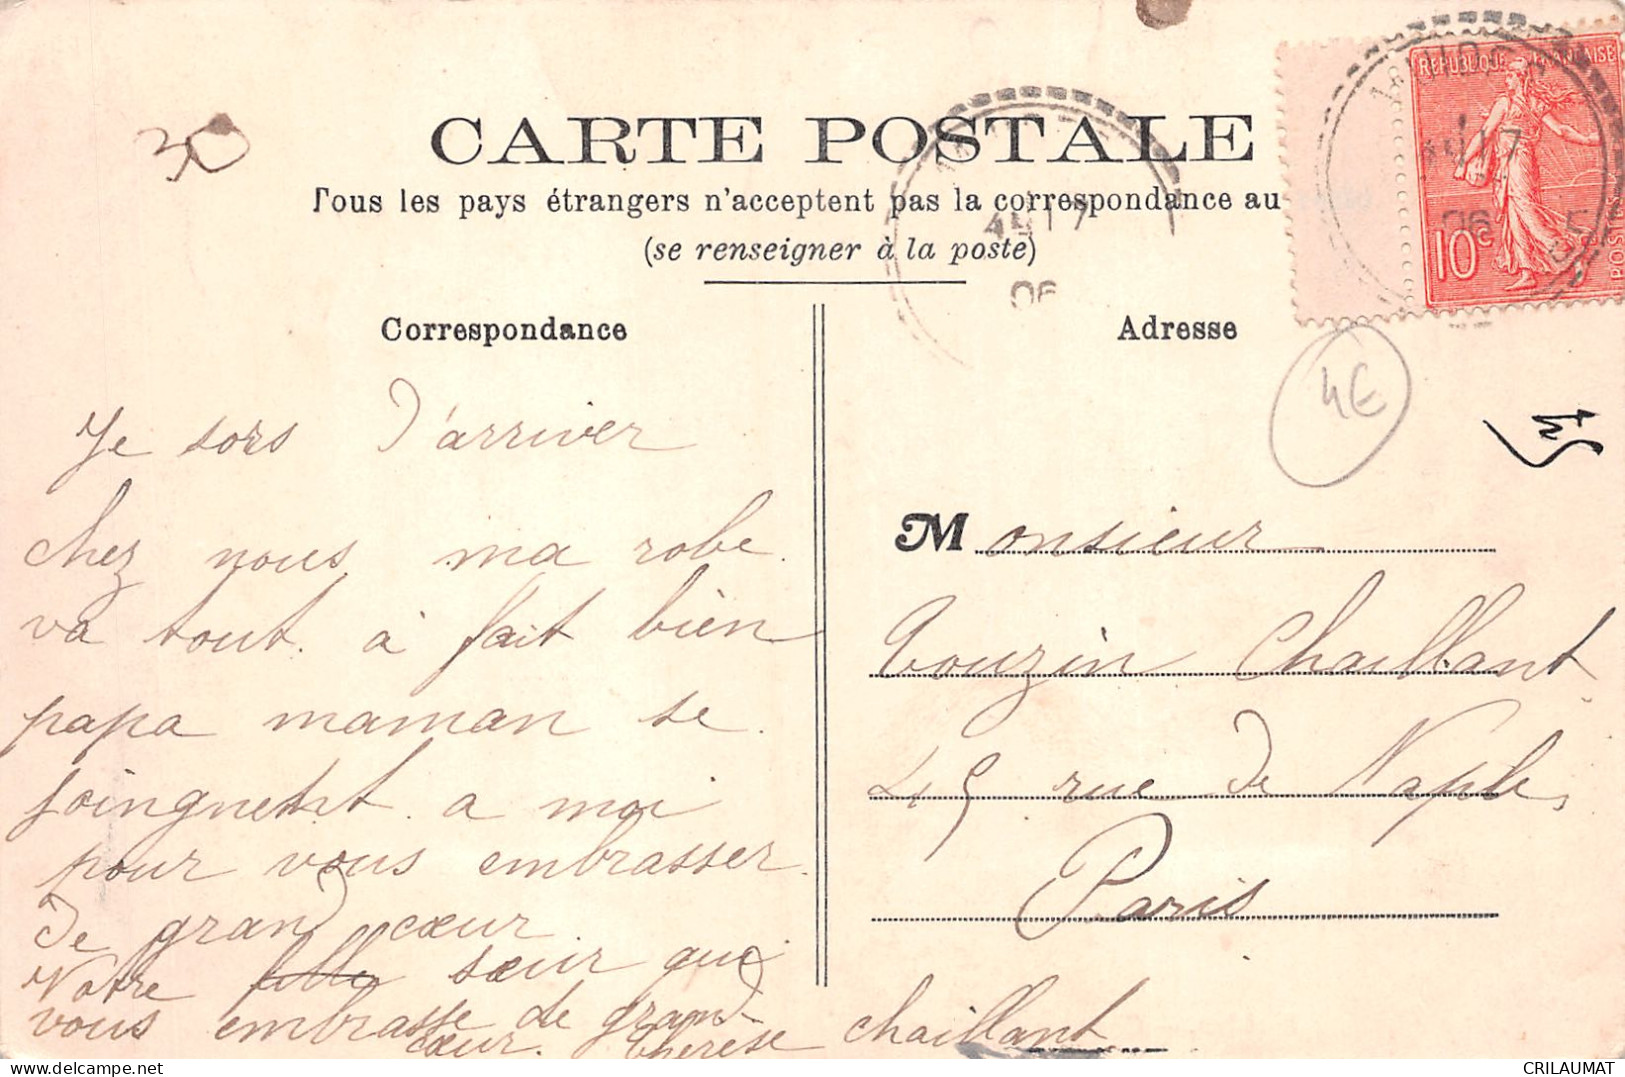 30
CARTE POSTALE
Tous les pays étrangers n'acceptent pas la correspondance au
(se renseigner à la poste)
RÉPUBLIQUE FRANÇAISE
10c
POSTES
17
06
17
06
4€
Correspondance
Je sors d'arriver
chez nous ma robe
va tout à fait bien
papa maman se
joingnent a moi
pour vous embrasser
de grand cœur
Notre fille sœur qui
vous embrasse de grand
cœur. Thérèse Chaillant
Adresse
Monsieur
Couzin Chaillant
45 rue de Naples
Paris
CRILAUMAT